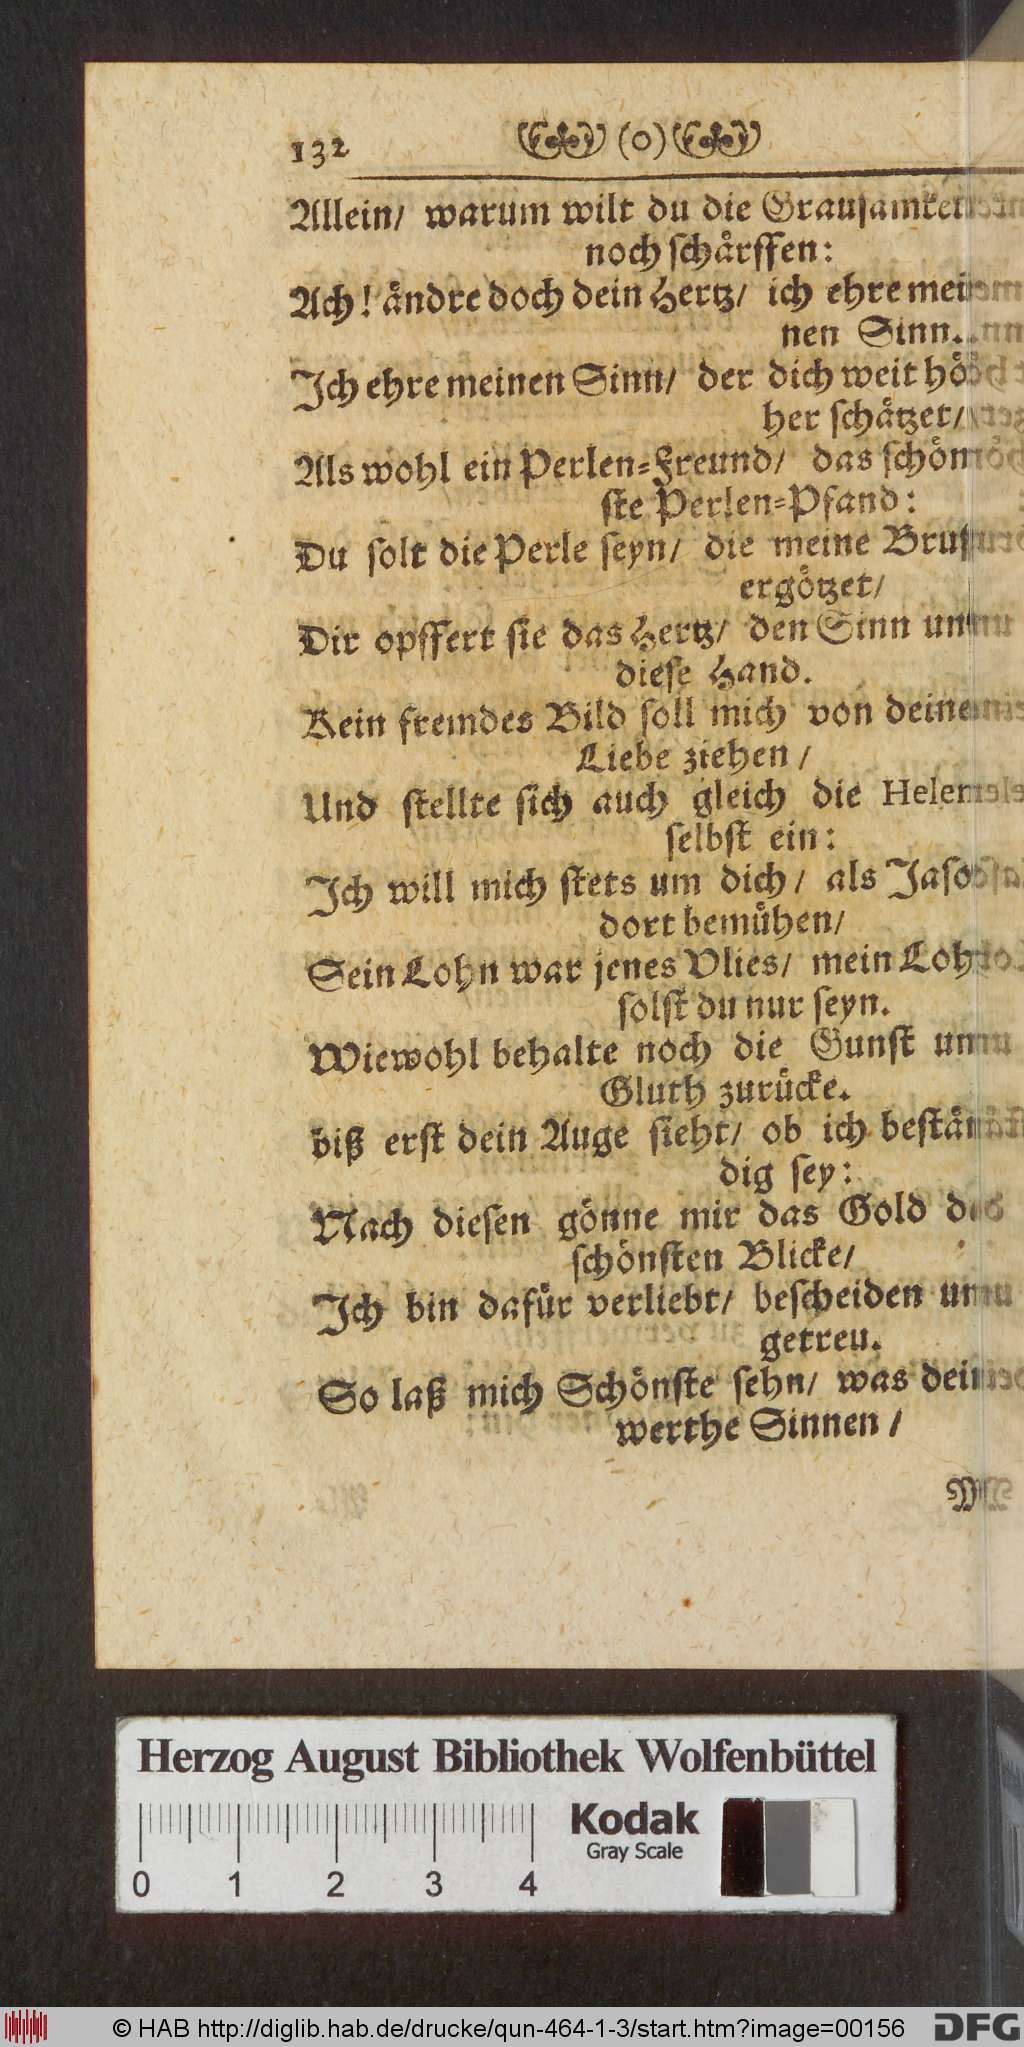 132 (o)
Allein/ warum wilt du die Grausamkeit
noch schärffen:
Ach! ändre doch dein Hertz/ ich ehre mei-
nen Sinn.
Ich ehre meinen Sinn/ der dich weit hö-
her schätzet/
Als wohl ein Perlen-Freund/ das schön-
ste Perlen-Pfand:
Du solt die Perle seyn/ die meine Brust
ergötzet/
Dir opffert sie das Hertz/ den Sinn und
diese Hand.
Kein fremdes Bild soll mich von deiner
Liebe ziehen /
Und stellte sich auch gleich die Helena
selbst ein:
Ich will mich stets um dich/ als Jason
dort bemühen/
Sein Lohn war jenes Vlies/ mein Lohn
solst du nur seyn.
Wiewohl behalte noch die Gunst und
Gluth zurücke.
biß erst dein Auge sieht/ ob ich bestän-
dig sey:
Nach diesen gönne mir das Gold der
schönsten Blicke/
Ich bin dafür verliebt/ bescheiden und
getreu.
So laß mich Schönste sehn/ was deine
werthe Sinnen /
Herzog August Bibliothek Wolfenbüttel
Kodak
Gray Scale
0 1 2 3 4
© HAB http://diglib.hab.de/drucke/qun-464-1-3/start.htm?image=00156 DFG